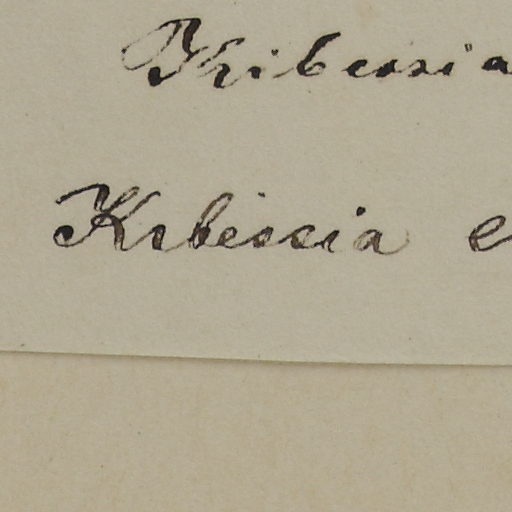 Kibessia
Kibessia e